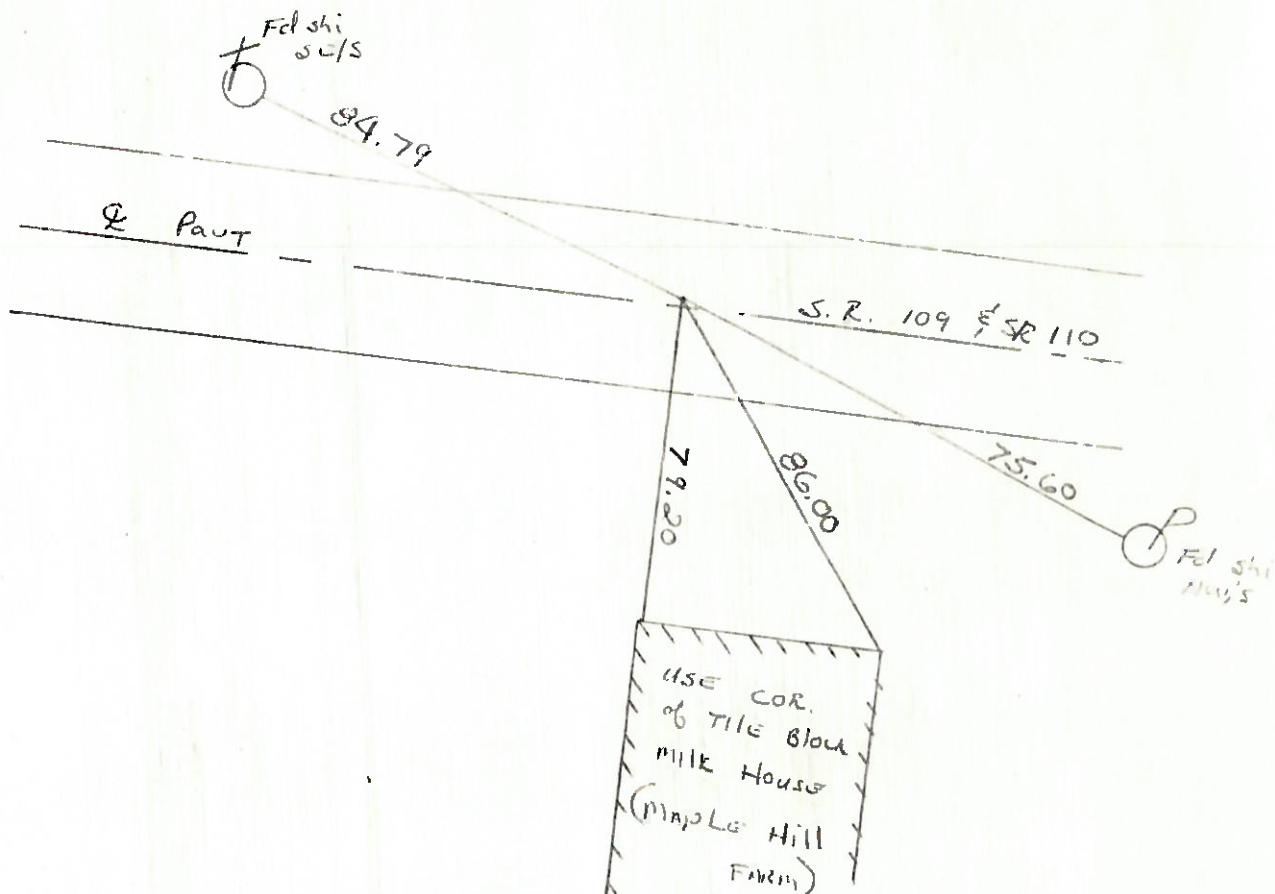 Fd shi
SE/S
84.79
℄ PavT
S.R. 109 & SR 110
79.20
86.00
75.60
Fd shi
NW/S
USE COR.
of TILE Block
MILK HOUSE
(MAPLE Hill
FARM)